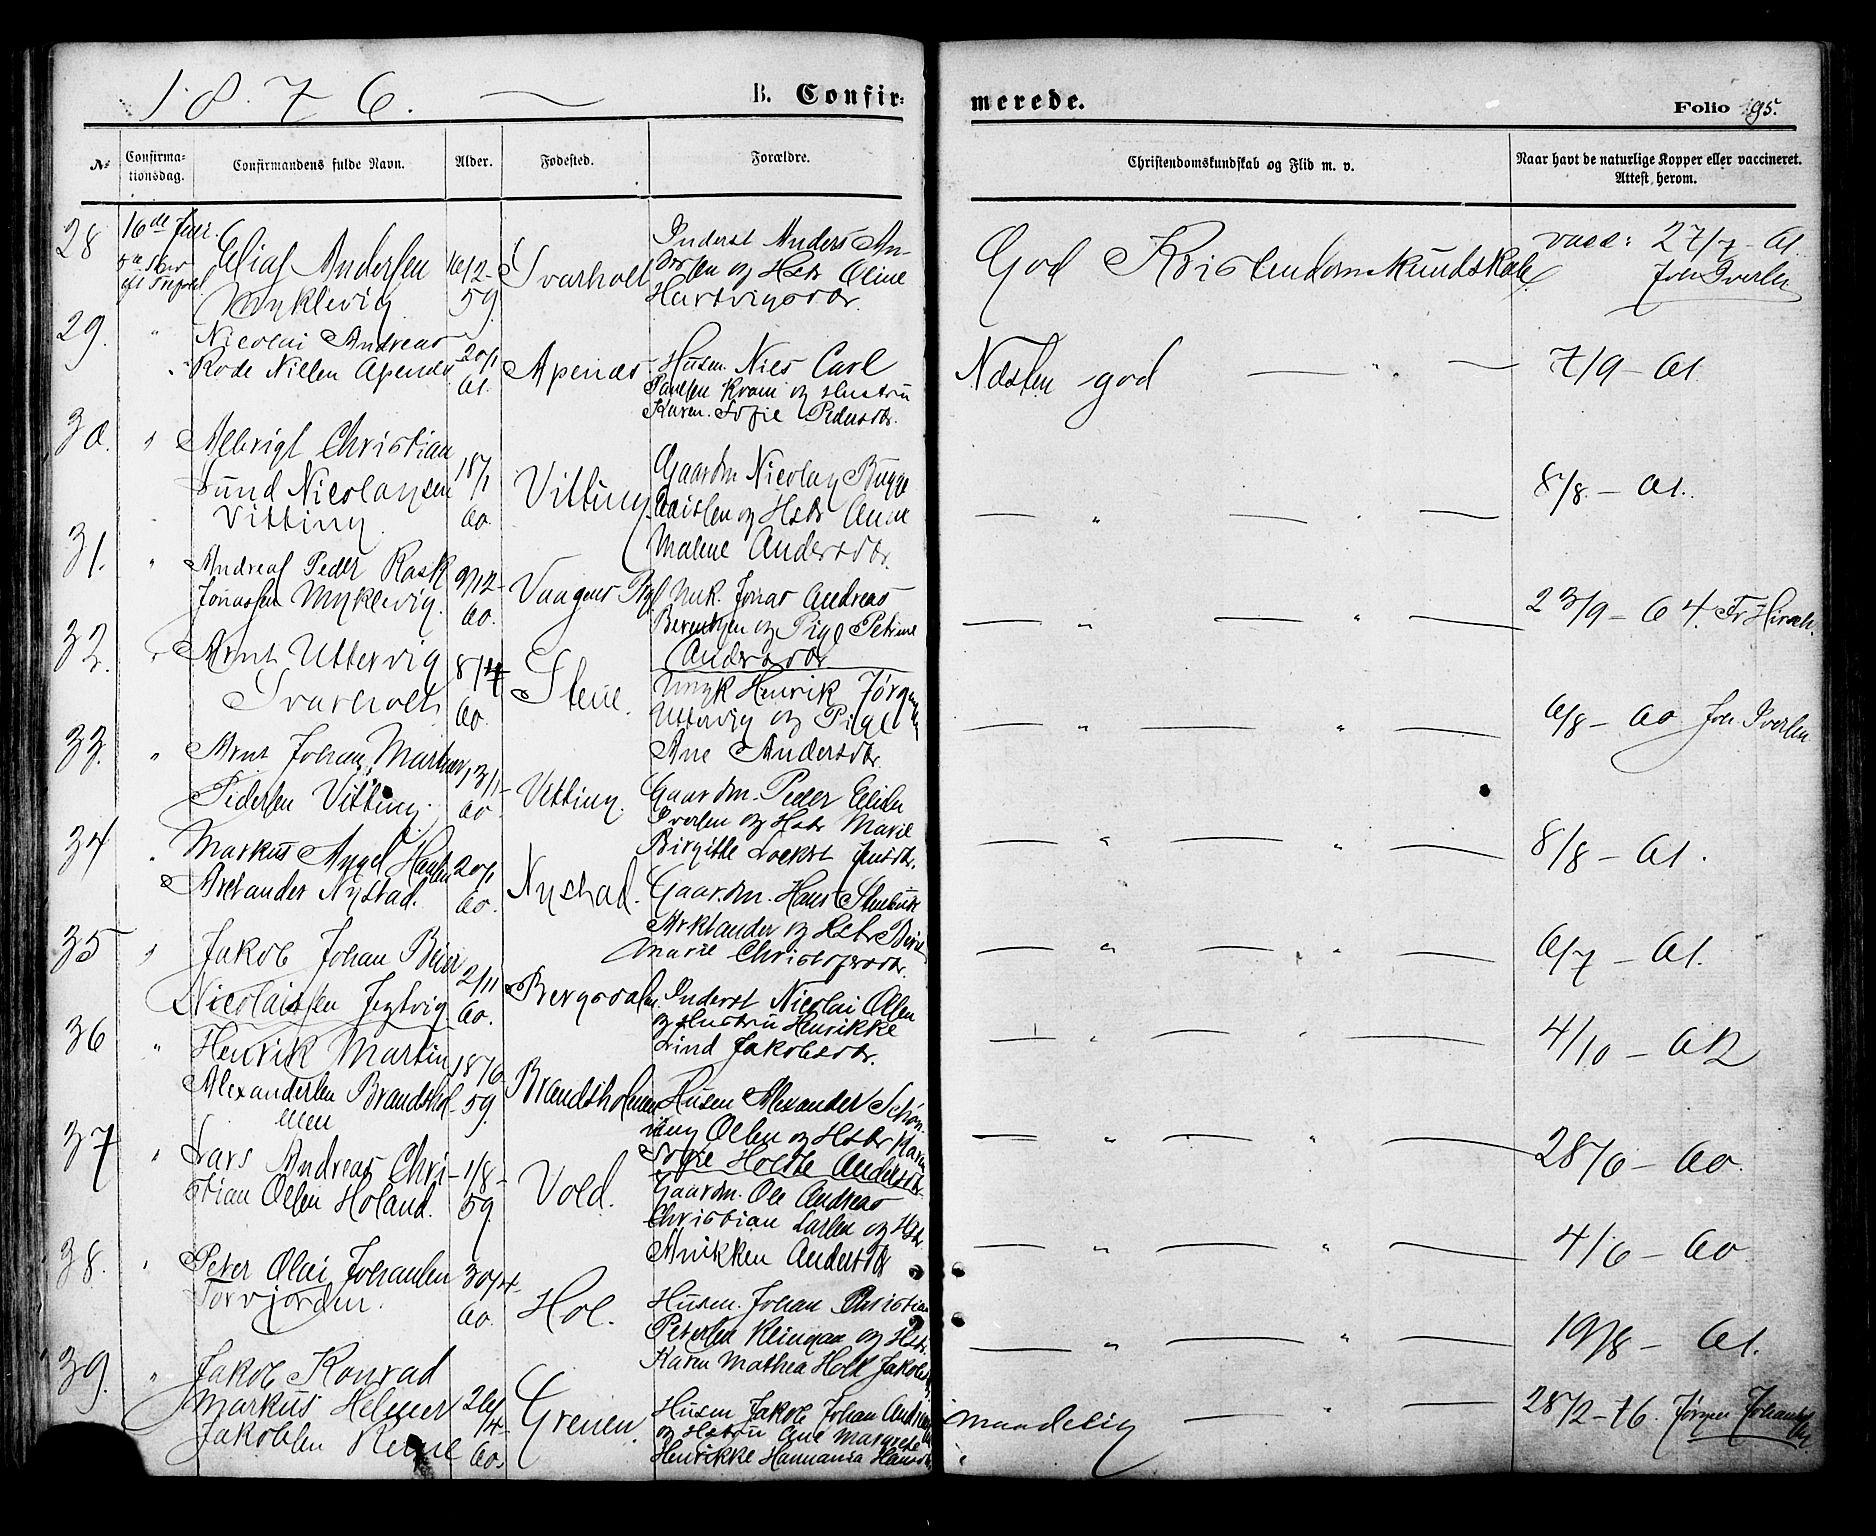 1876. B. Confirmerede. Folio 95.
No Confirmationsdag. Confirmandens fulde Navn. Alder. Fødested. Forældre. Christendomskundskab og Flid m. v. Naar havt de naturlige Kopper eller vaccineret. Attest herom.
28 16de Juli.
Elias Andersen
Myklevig
16/2-
59.
Svarholt
Inderst Anders An-
dersen og Hstr Oline
Hartvigsdtr.
God Kristendomskundskab
vacc: 27/7 - 61
Joh Iversen
29. " Nicolai Andreas
Rode Nilsen Apenæs
20/1
61.
Apenæs
Husm. Niels Carl
Paulsen Kram og Hustru
Karen Sofie Pedersdtr.
Næsten god — " —
7/9 - 61
30. " Albrigt Christian
Lund Nicolaysen
Vitting
18/1
60.
Vitting
Gaardm Nicolay Bugge
og Hstr Anne
Malene Andersdtr.
— " — " —
8/8 - 61.
31. " Andreas Peder Rask
Jonassen Myklevig.
9/12-
60.
Vaagenes
Umk. Jonas Andreas
Berentsen og Pige Petrine
Andersdtr
— " — " —
23/9 - 64. Fr Hirsch.
32. " Arnt Uttervig
Svarholt
8/4
60.
Stene.
Umgk Henrik Jørgensen
Uttervig og Pige
Ane Andersdtr.
— " — " —
6/8 - 60 Joh. Iversen
33. " Arnt Johan Martner
Pedersen Vitting.
13/1-
60
Vitting.
Gaardm. Peder Elias
Iversen og Hstr Marie
Birgitte Lockert Jensdtr.
— " — " —
8/8 - 61.
34 " Markus Angel Hansen
Arctander Nystad.
20/1
60.
Nystad.
Gaardm. Hans Stenbuk
Arktander og Hstr
Marie Christofersdtr.
— " — " —
6/7 - 61.
35 " Jakob Johan Beier
Nicolaissen Jegtvig
2/11
60.
Bergsdalen.
Inderst Nicolai Olsen
og Hustru Henrikke
Lind Jakobsdtr.
— " — " —
4/10 - 62
36 " Henrik Martin
Alexandersen Brandshol-
men
18/6
59.
Brandsholmen
Husm Alexander Schøn-
ning Olsen og Hstr Karen
Sofie Holdte Andersdtr.
— " — " —
28/6 - 60.
37 " Lars Andreas Chri-
stian Olsen Holand.
1/8-
59.
Vold.
Gaardm. Ole Andreas
Christian Larsen og Hstr
Anikken Andersdtr
— " — " —
4/6 - 60
38. " Peter Olai Johansen
Torvjorden.
30/4-
60.
Hol.
Husm. Johan Christian
Petersen Klingan og Hstr.
Karen Mathea Hold Jakobsdtr
— " — " —
19/8 - 61.
39. " Jakob Konrad
Markus Helmer
Jakobsen Reine
26/
4-
60.
Grenen.
Husm Jakob Johan Andreas
og Hustru Ane Margrete
Henrikke Hannania Hansdtr
maadelig — " —
28/2 - 76. Jørgen Johansen